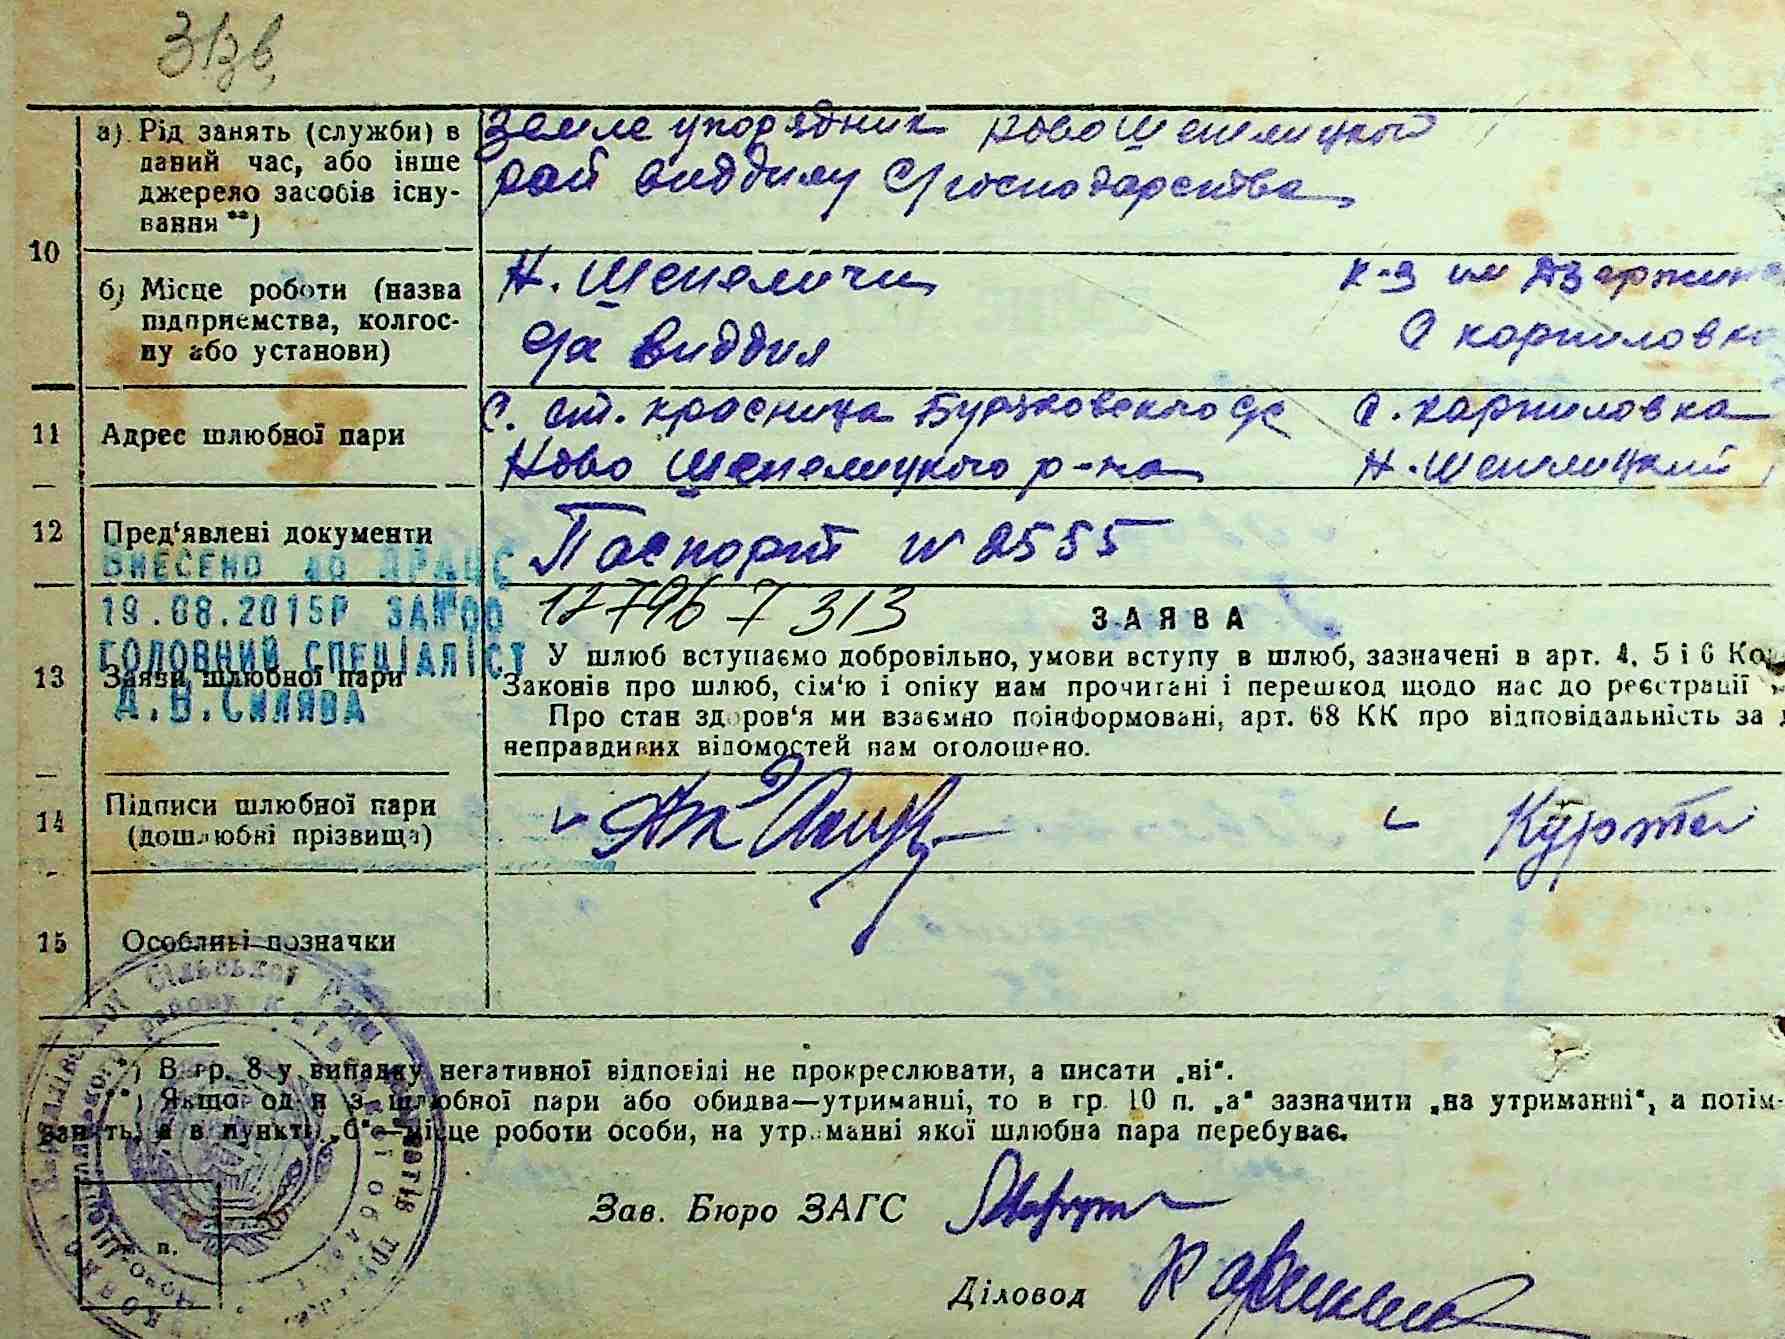 3 зв
а) Рід занять (службн) в Земле упорядник Ново Шепелицкого
даний час, або інше рай виддилу С/господарства
джерело засобів існу-
вання **)
10
б) Місце роботи (назва Н. Шепеличи к-з им Дзержинс
підприємства, колгос- С карпиловка
пу або установи) виддил
11 Адрес шлюбної пари С. ст. красница Буряковского с/с С. карпиловка
Ново Шепелицкого р-на Н. Шепелицкий
12 Пред'явлені документи Паспорт № 2555
ВНЕСЕНО до ДРАЦС
19.08.2015Р ЗА№00 12796 7 313 ЗАЯВА
ГОЛОВНИЙ СПЕЦІАЛІСТ У шлюб вступаємо добровільно, умови вступу в шлюб, зазначені в арт. 4, 5 і 6
13 Заяви шлюбної пари Законів про шлюб, сім'ю і опіку нам прочитані і перешкод щодо нас до реєстрації
А.В.СИЛЯВА Про стан здоров'я ми взаємно поінформовані, арт. 68 КК про відповідальність за
неправдивих відомостей нам оголошено.
14 Підписи шлюбної пари Курта
(дошлюбні прізвища)
15 Особливі позначки
*) В гр. 8 у випадку негативної відповіді не прокреслювати, а писати „ні“.
**) Якщо один з шлюбної пари або обидва—утриманці, то в гр. 10 п. „а“ зазначити „на утриманні“, а
в пункті „б“—місце роботи особи, на утриманні якої шлюбна пара перебуває.
Зав. Бюро ЗАГС
Діловод
п.